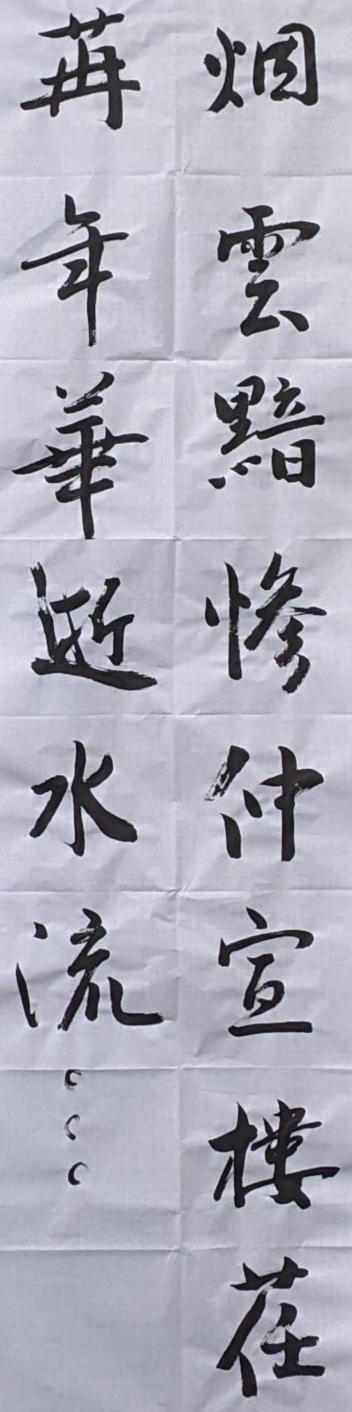 烟雲黯慘仲宣樓荏
苒年華逝水流